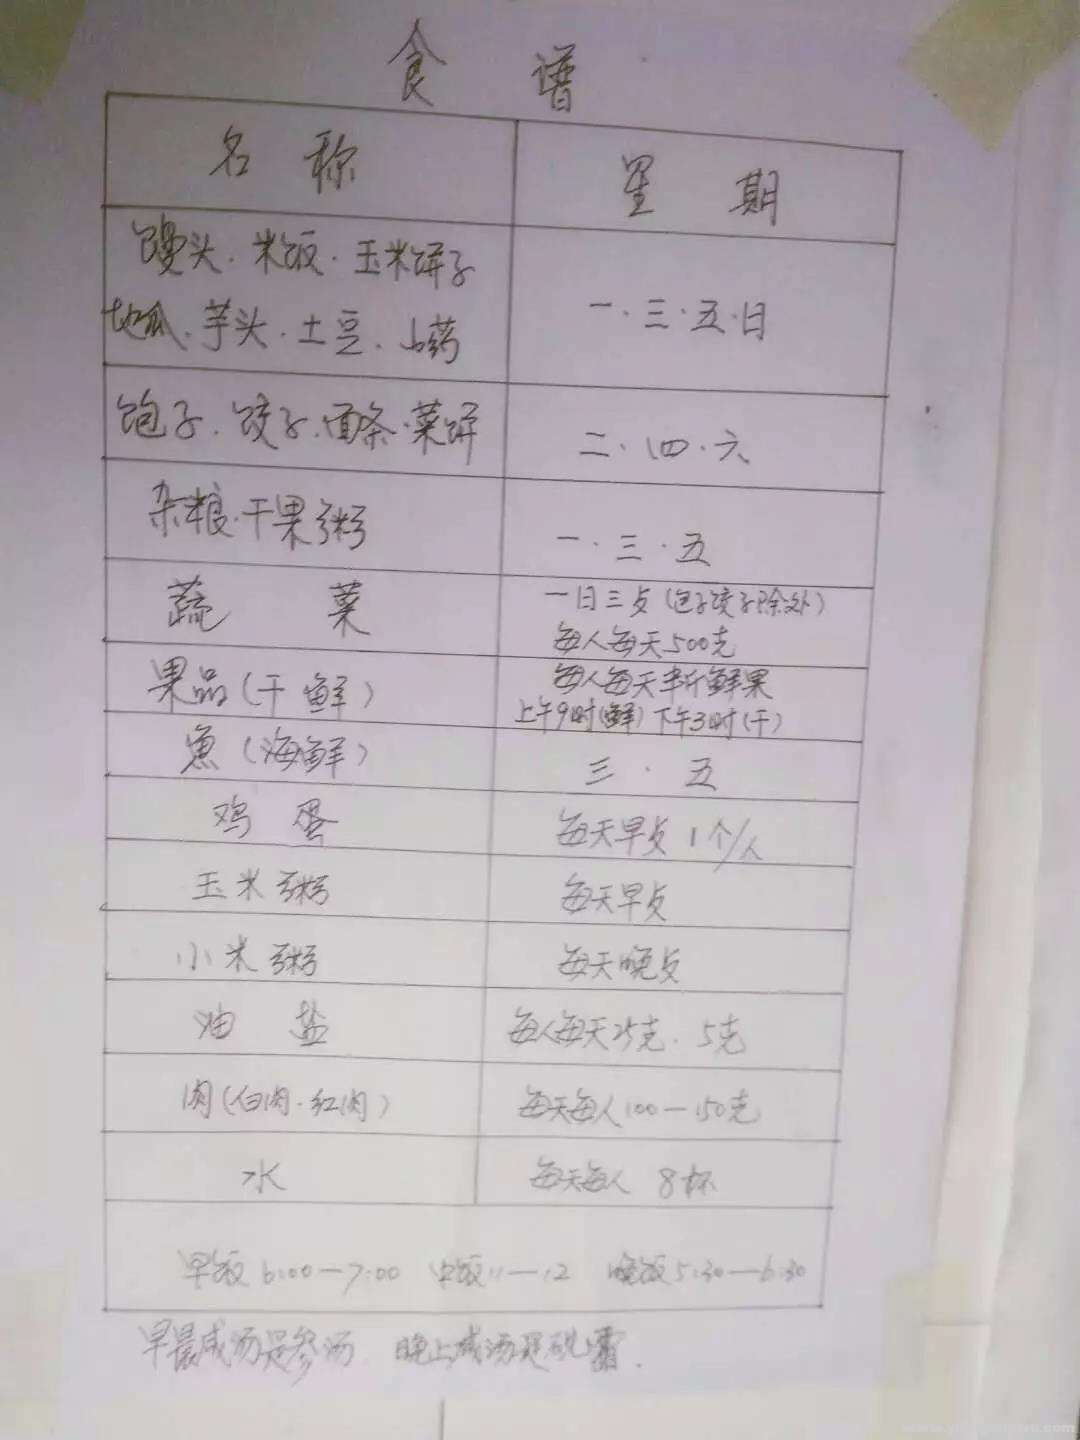 食 谱
名 称 星 期
馒头·米饭·玉米饼子
地瓜、芋头·土豆、山药
一·三·五·日
饱子、饺子、面条·菜饼
二·四·六
杂粮·干果粥
一·三·五
蔬 菜
一日三歺(包子饺子除外)
每人每天500克
果品(干 鲜)
每人每天半斤鲜果
上午9时(鲜)下午3时(干)
鱼(海鲜)
三·五
鸡 蛋
每天早歺1个/人
玉米粥
每天早歺
小米粥
每天晚歺
油 盐
每人每天25克、5克
肉(白肉·红肉)
每天每人100—150克
水
每天每人 8杯
早饭6:00—7:00 中饭11—12 晚饭5:30—6:30
早晨咸汤是参汤 晚上咸汤是砒霜.